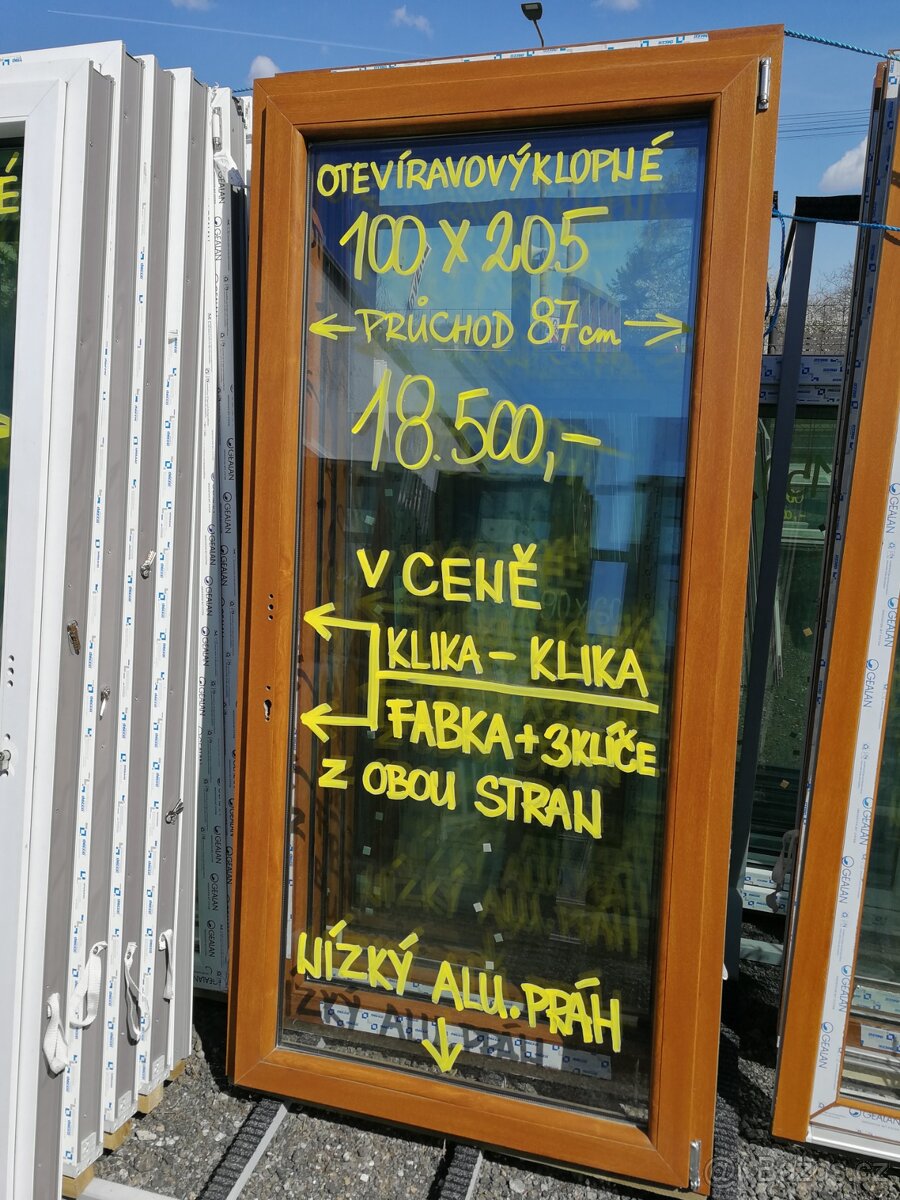 OTEVÍRAVOVÝKLOPNÉ
100 X 205
PRŮCHOD 87cm
18.500,-
V CENĚ
KLIKA - KLIKA
FABKA + 3 KLÍČE
Z OBOU STRAN
NÍZKÝ ALU. PRÁH
GEALAN
GEALAN
GEALAN
GEALAN